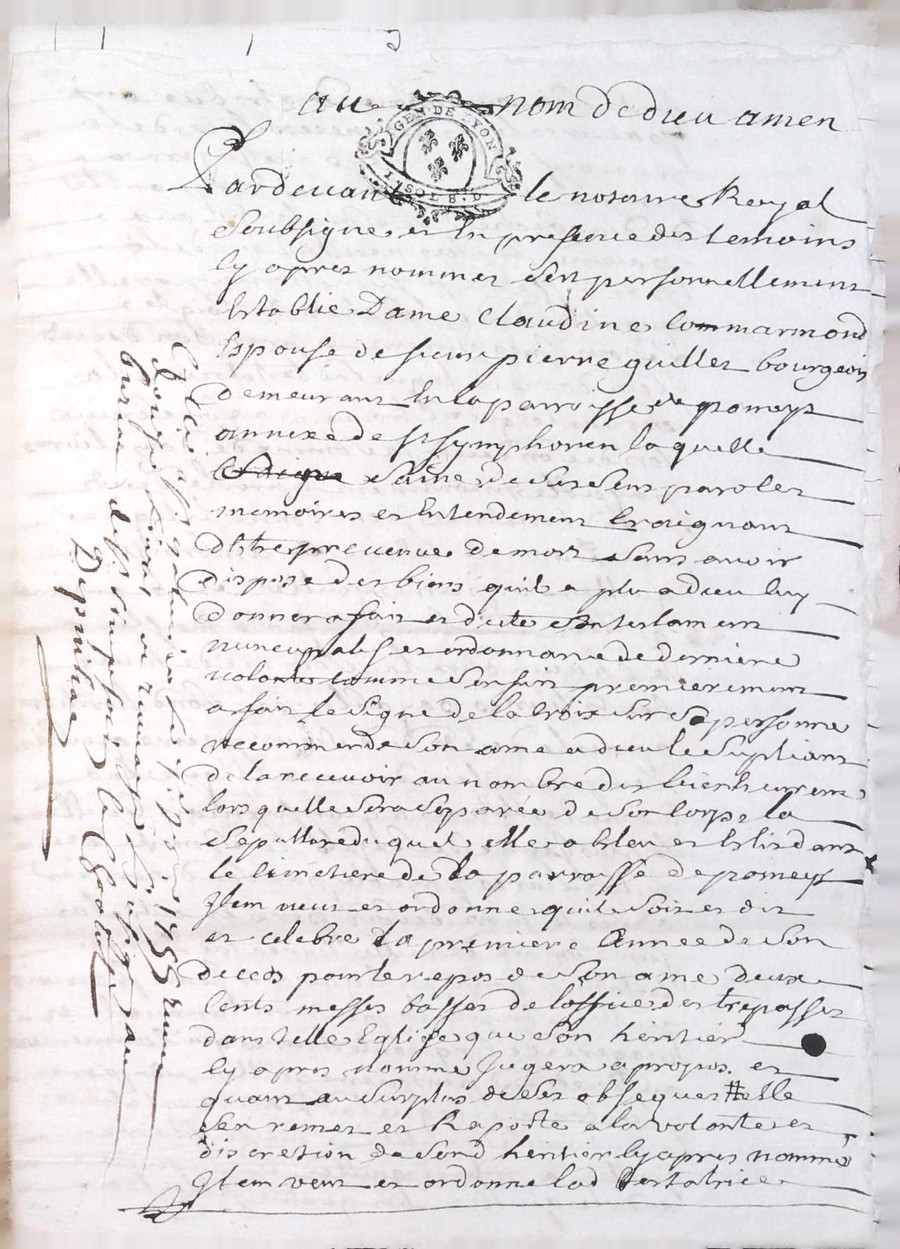 au nom de dieu amen
GEN. DE LYON
1. SOL 8. D
Pardevant le notaire Royal
soubsigne et en presence des temoins
cy apres nommes sest personnellement
establie Dame Claudine Commarmond
Espouse de sieur pierre guillet bourgeois
demeurant en la parroisse de pomeys
annexe de st symphorien laquelle
saine de ses sens parolles
memoires et entendement craignant
destre prevenue de mort sans avoir
dispose des biens quil a plu a dieu luy
donner a fait et dicte son testament
nuncupatif et ordonnance de derniere
volonte comme sensuit premierement
a fait le signe de la croix sur sa personne
recommende son ame a dieu le supliant
de la recevoir au nombre des bienheureux
lors quelle sera separée de son corps la
sepulture duquel elle a eleu et eslit dans
le cimetiere de la parroisse de pomeys
Item veut et ordonne quil soit et dit
et celebre la premiere année de son
deces pour le repos de son ame deux
cents messes basses de loffice des trepasses
dans telle Eglise que son heritier
cy apres nomme jugera a propos et
quant au surplus de ses obseques # elle
sen remet et raporte a la volonte et
discretion de sond heritier cy apres nommé
Item veut et ordonne lad testatrice
1755